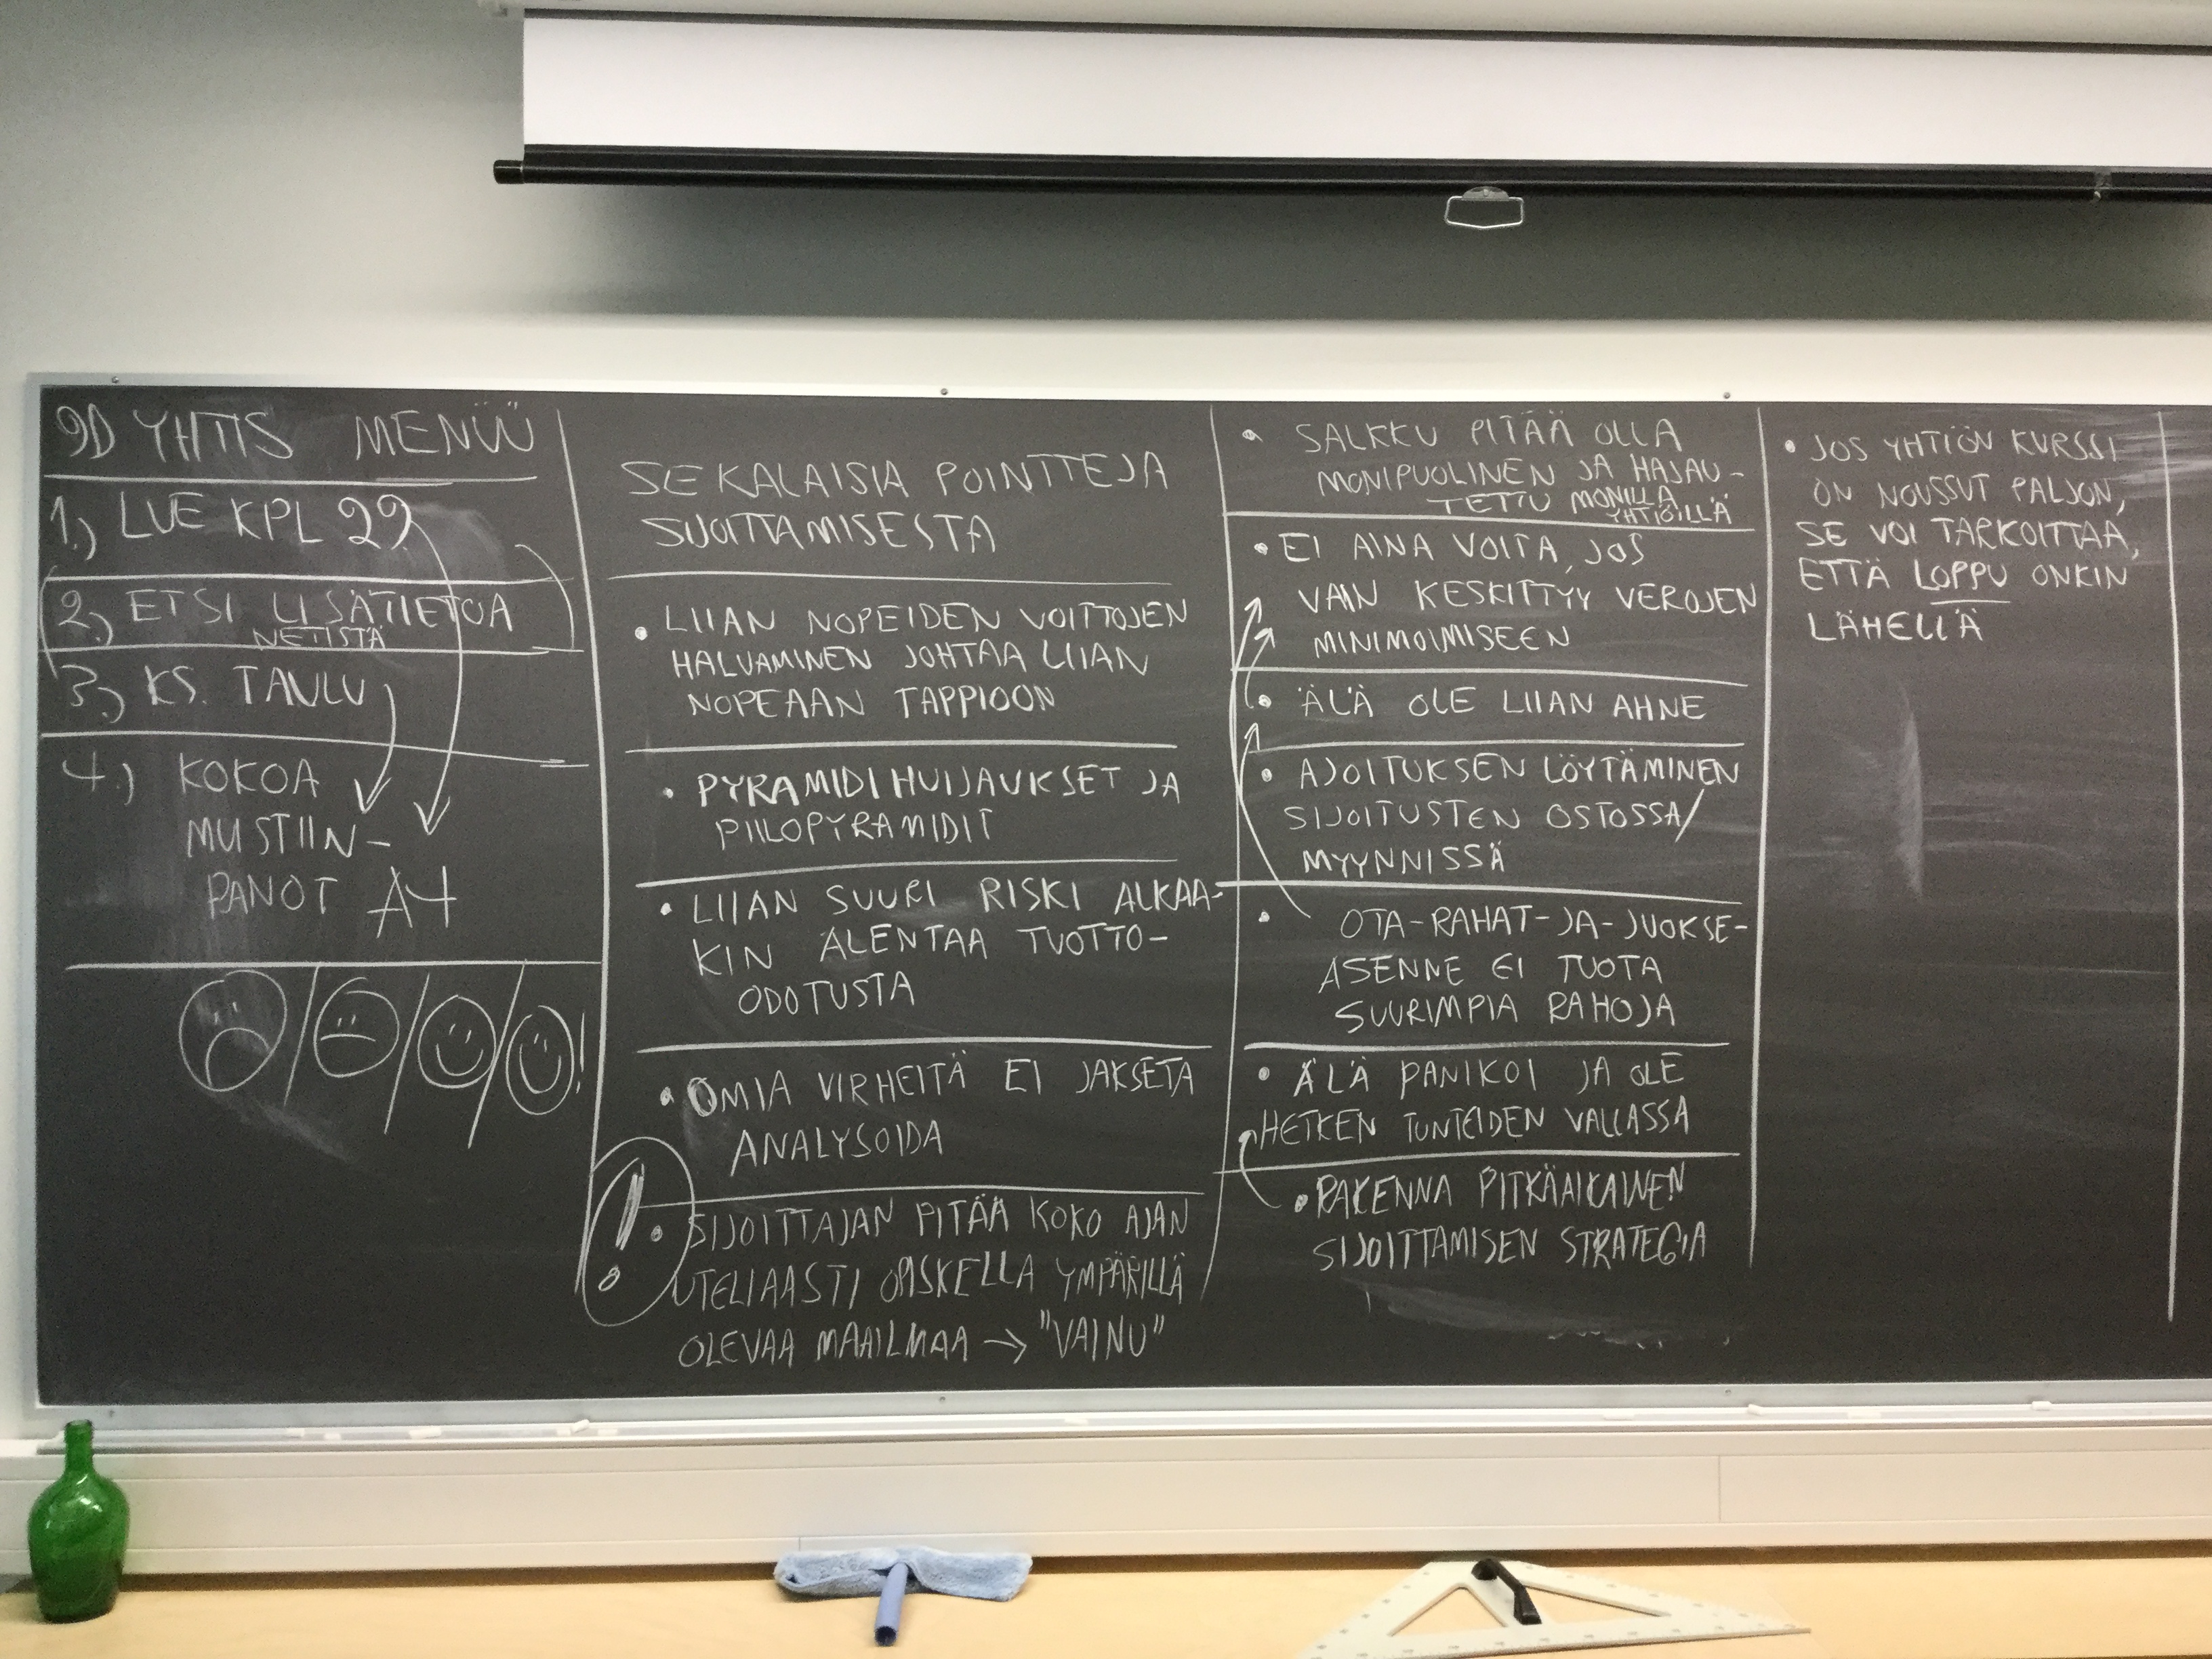 9D YHTIS MENÜÜ
1.) LUE KPL 29
2.) ETSI LISÄTIETOA
NETISTÄ
3.) KS. TAULU
4.) KOKOA
MUISTIIN-
PANOT A4
SEKALAISIA POINTTEJA
SIJOITTAMISESTA
• LIIAN NOPEIDEN VOITTOJEN
HALUAMINEN JOHTAA LIIAN
NOPEAAN TAPPIOON
• PYRAMIDIHUIJAUKSET JA
PIILOPYRAMIDIT
• LIIAN SUURI RISKI ALKAA-
KIN ALENTAA TUOTTO-
ODOTUSTA
• OMIA VIRHEITÄ EI JAKSETA
ANALYSOIDA
! • SIJOITTAJAN PITÄÄ KOKO AJAN
UTELIAASTI OPISKELLA YMPÄRILLÄ
OLEVAA MAAILMAA → "VAINU"
• SALKKU PITÄÄ OLLA
MONIPUOLINEN JA HAJAU-
TETTU MONILLA
YHTIÖILLÄ
• EI AINA VOITA, JOS
VAIN KESKITTYY VEROJEN
MINIMOIMISEEN
• ÄLÄ OLE LIIAN AHNE
• AJOITUKSEN LÖYTÄMINEN
SIJOITUSTEN OSTOSSA/
MYYNNISSÄ
• OTA-RAHAT-JA-JUOKSE-
ASENNE EI TUOTA
SUURIMPIA RAHOJA
• ÄLÄ PANIKOI JA OLE
HETKEN TUNTEIDEN VALLASSA
• RAKENNA PITKÄAIKAINEN
SIJOITTAMISEN STRATEGIA
• JOS YHTIÖN KURSSI
ON NOUSSUT PALJON,
SE VOI TARKOITTAA,
ETTÄ LOPPU ONKIN
LÄHELLÄ